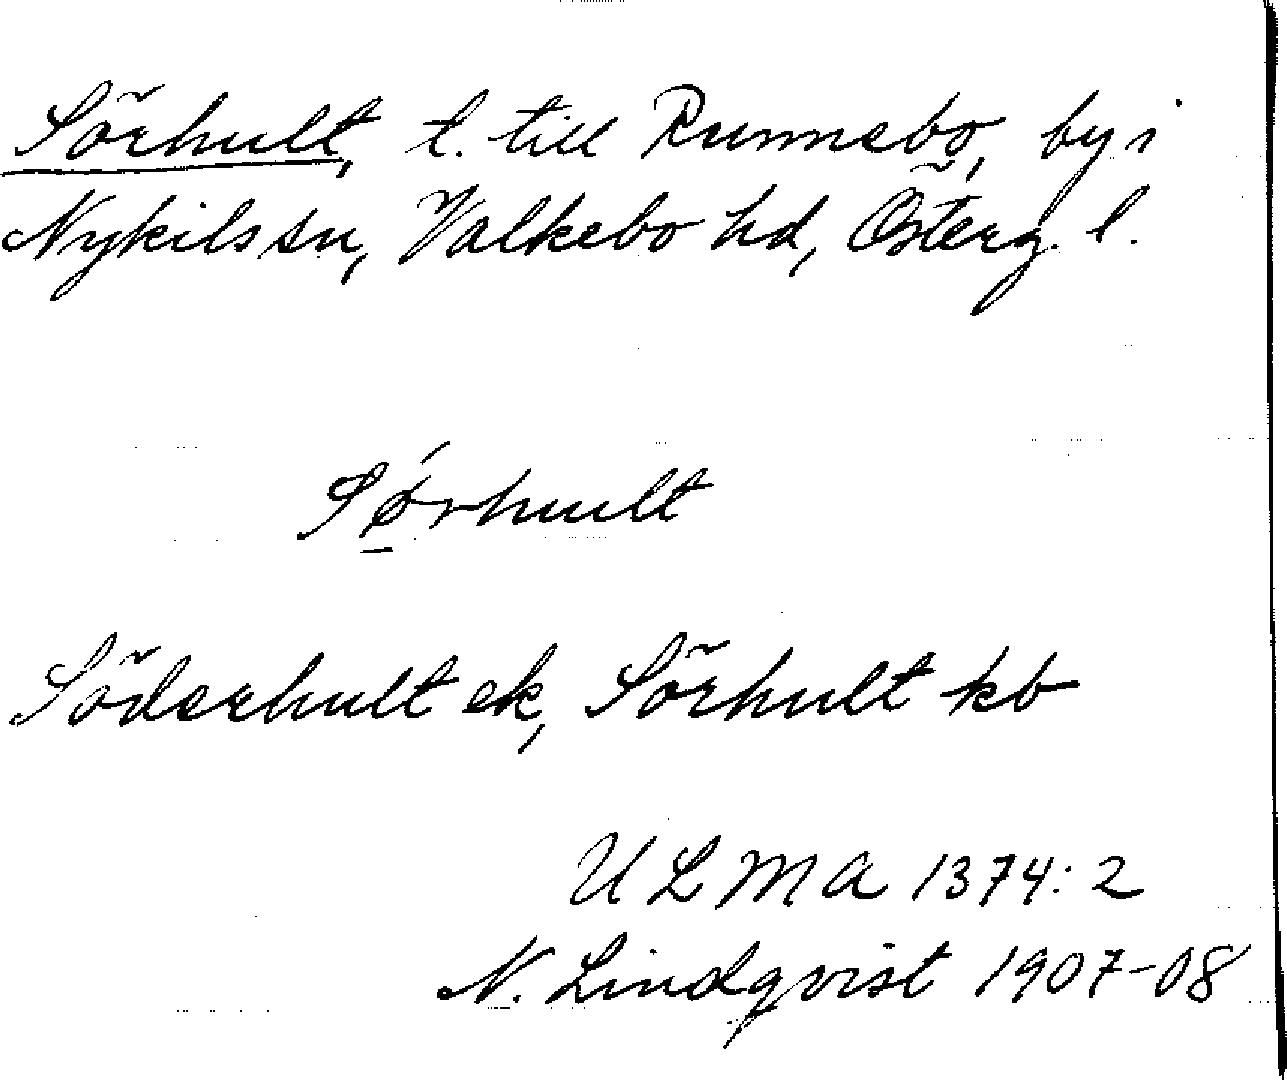 Sörhult, t. till Runnebo, by i
Nykils sn, Valkebo hd, Österg. l.
Sǿrhult
Söderhult ek, Sörhult kb
ULMA 1374:2
N. Lindqvist 1907-08